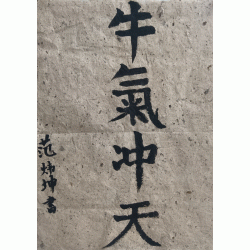 牛氣冲天
范炳坤書